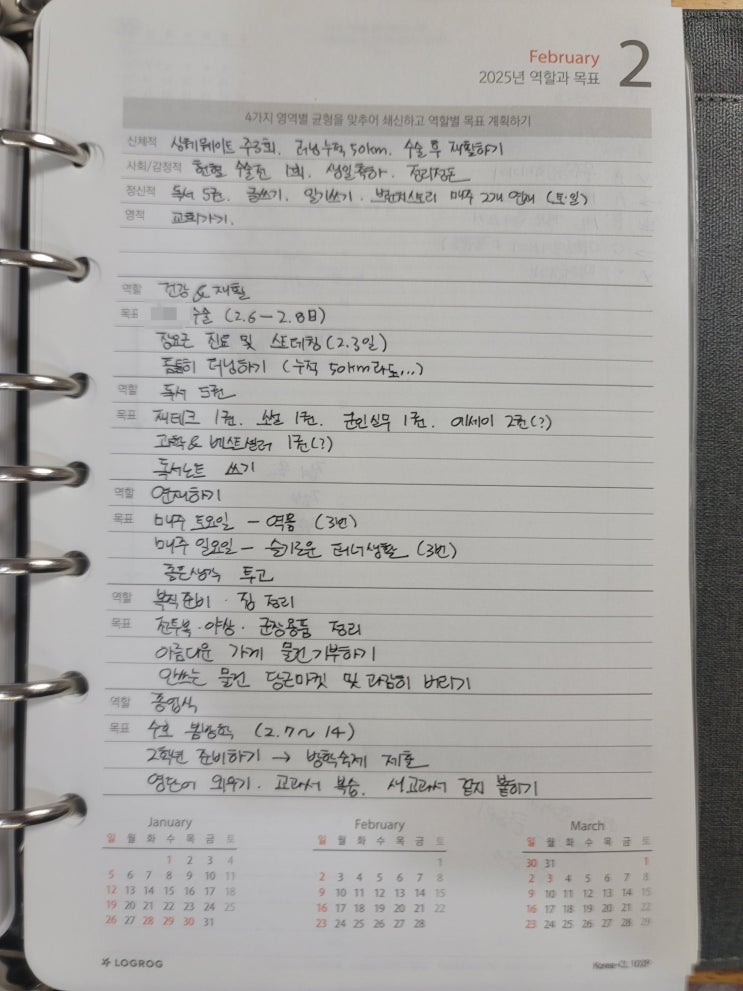 February 2
2025년 역할과 목표
4가지 영역별 균형을 맞추어 쇄신하고 역할별 목표 계획하기
신체적 상체 웨이트 주3회. 러닝누적 50km. 수술 후 재활하기
사회/감정적 헌혈 수술전 1회. 생일축하. 정리정돈
정신적 독서 5권. 글쓰기. 일기쓰기. 브런치스토리 매주 2개 연재 (토·일)
영적 교회가기.
역할 건강 & 재활
목표 수술 (2.6 - 2.8日)
장요근 진료 및 스트레칭 (2.3일)
틈틈히 러닝하기 (누적 50km라도...)
역할 독서 5권
목표 재테크 1권. 소설 1권. 군인실무 1권. 에세이 2권(?)
과학 & 베스트셀러 1권(?)
독서노트 쓰기
역할 연재하기
목표 매주 토요일 - (3번)
매주 일요일 - 슬기로운 러너생활 (3번)
좋은생각 투고
역할 복직준비 · 집 정리
목표 전투복 · 야상 · 군장용품 정리
아름다운 가게 물건기부하기
안쓰는 물건 당근마켓 및 과감히 버리기
역할 종업식
목표 수호 봄방학 (2.7~14)
2학년 준비하기 → 방학숙제 제출
영단어 외우기. 교과서 복습. 새교과서 겉지 붙이기
January February March
일 월 화 수 목 금 토 일 월 화 수 목 금 토 일 월 화 수 목 금 토
1 2 3 4 1 30 31 1
5 6 7 8 9 10 11 2 3 4 5 6 7 8 2 3 4 5 6 7 8
12 13 14 15 16 17 18 9 10 11 12 13 14 15 9 10 11 12 13 14 15
19 20 21 22 23 24 25 16 17 18 19 20 21 22 16 17 18 19 20 21 22
26 27 28 29 30 31 23 24 25 26 27 28 23 24 25 26 27 28 29
LOGROG